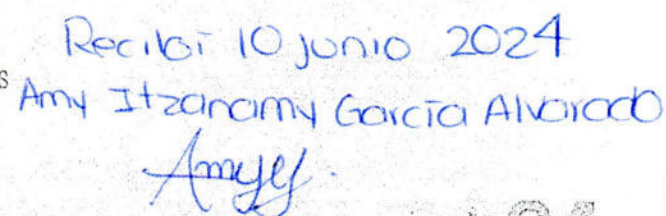 Recibí 10 junio 2024
s Amy Itzanamy García Alvarado